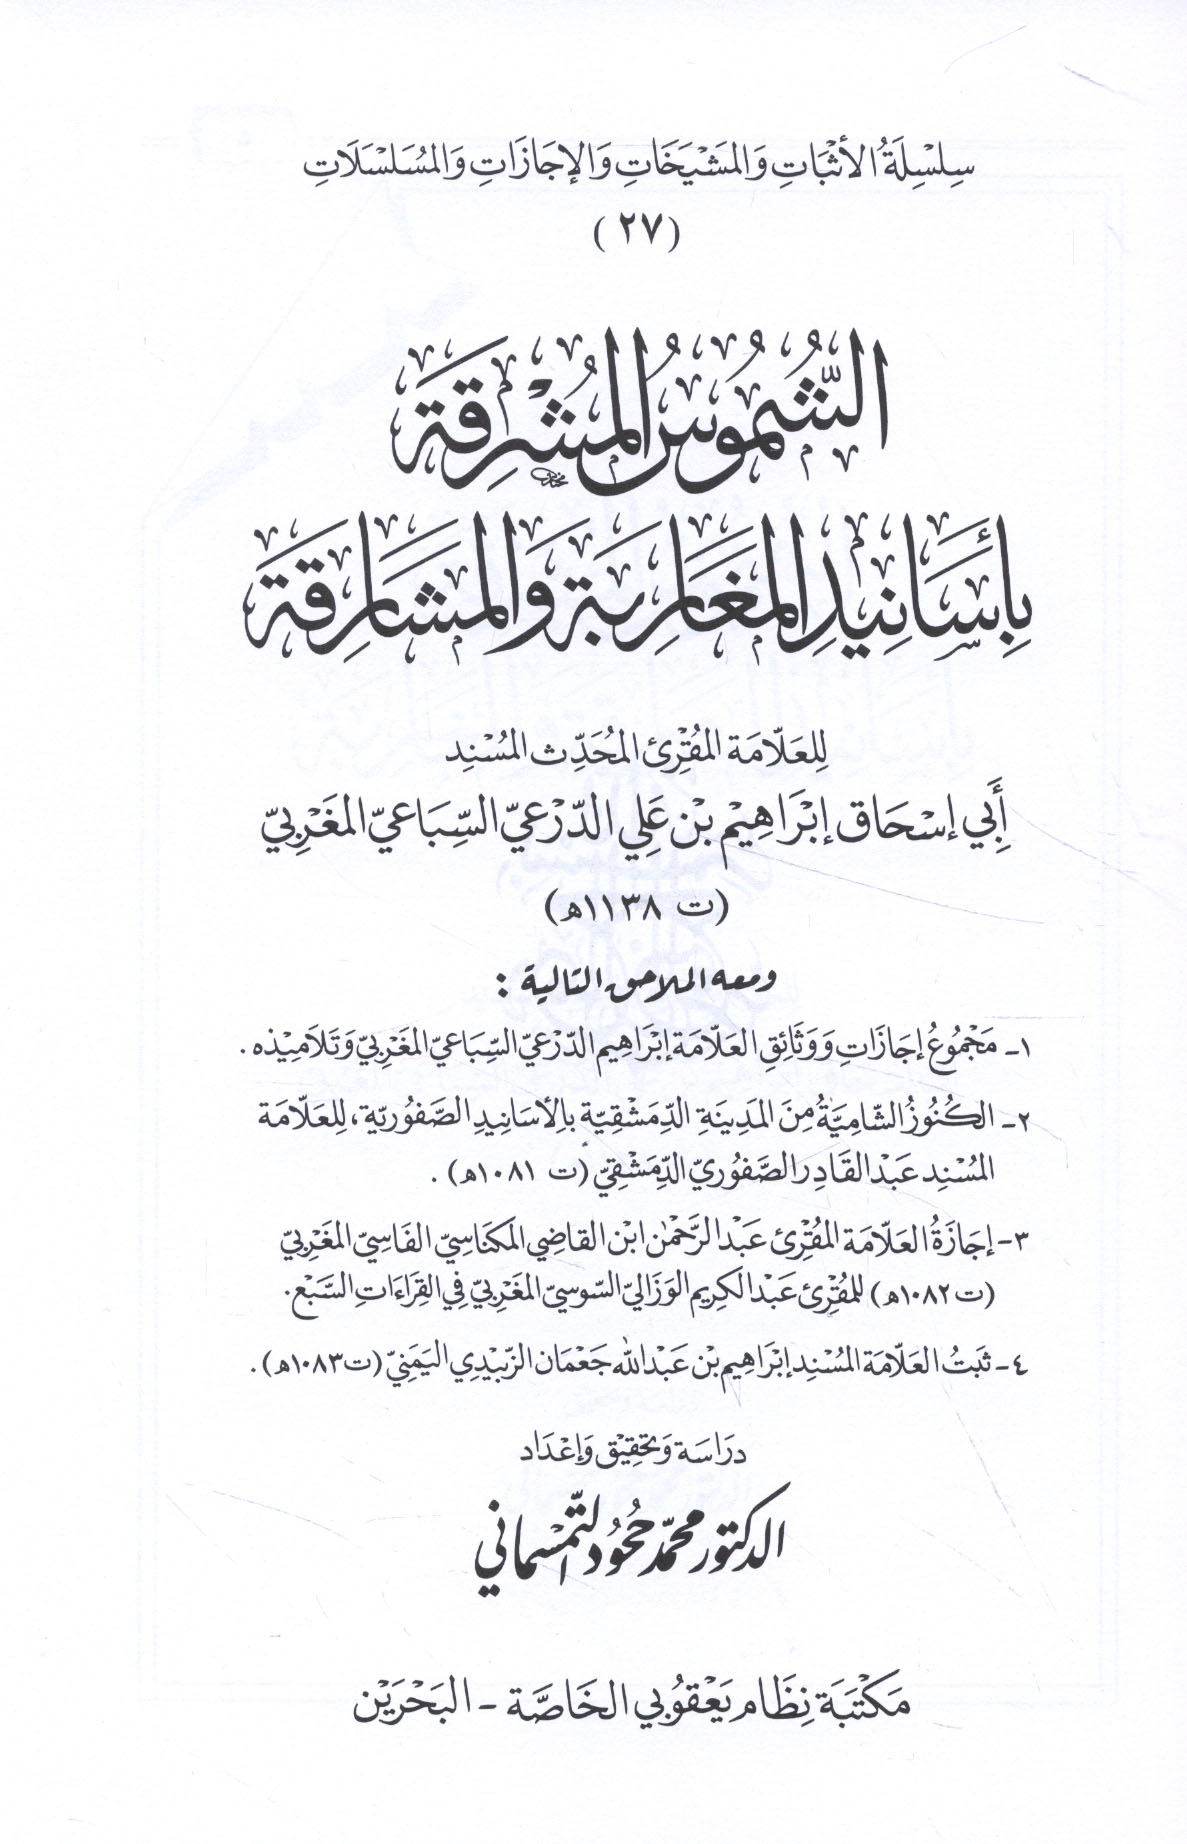 سِلْسِلَةُ الأَثْبَاتِ وَالمَشْيَخَاتِ وَالإِجَازَاتِ وَالمُسَلْسَلَاتِ
(٢٧)
الشُّمُوسُ المُشْرِقَة
بِأَسَانِيدِ المَغَارِبَة وَالمَشَارِقَة
لِلعَلّامَة المُقْرِئ المُحَدِّث المُسْنِد
أَبِي إِسْحَاق إِبْرَاهِيْم بْن عَلِي الدّرْعيّ السِّبَاعيّ المَغْرِبيّ
(ت ١١٣٨هـ)
ومعه الملاحق التالية :
١- مَجْمُوعُ إجَازَاتٍ وَوَثَائِقِ العَلّامَة إِبْرَاهِيم الدّرْعيّ السِّبَاعيّ المَغْرِبيّ وَتَلَامِيْذه .
٢- الكُنُوزُ الشَّامِيَّةُ مِنَ المَدِينَةِ الدِّمَشْقِيَّة بِالأَسَانِيدِ الصَّفُوريّة، لِلعَلّامَة
المُسْنِد عَبْد القَادِر الصَّفُوريّ الدِّمَشْقِيّ (ت ١٠٨١هـ) .
٣- إجَازَةُ العَلّامَة المُقْرِئ عَبْد الرَّحْمٰن ابْن القَاضِي المَكنَاسِيّ الفَاسِيّ المَغْرِبيّ
(ت ١٠٨٢هـ) للمُقْرِئ عَبْد الكَرِيم الوَزَاليّ السّوسِيّ المَغْرِبيّ فِي القِرَاءَاتِ السَّبْع.
٤- ثَبَتُ العَلّامَة المُسْنِد إِبْرَاهِيم بْن عَبْد الله جَعْمَان الزَّبِيْدِي اليَمَنِيّ (ت ١٠٨٣هـ) .
دِرَاسَة وَتَحْقِيْق وَإِعْدَاد
الدكتور محمّد حُحُود التّمْسماني
مَكْتَبَة نِظَام يَعْقُوبي الخَاصَّة - البَحْرَيْن